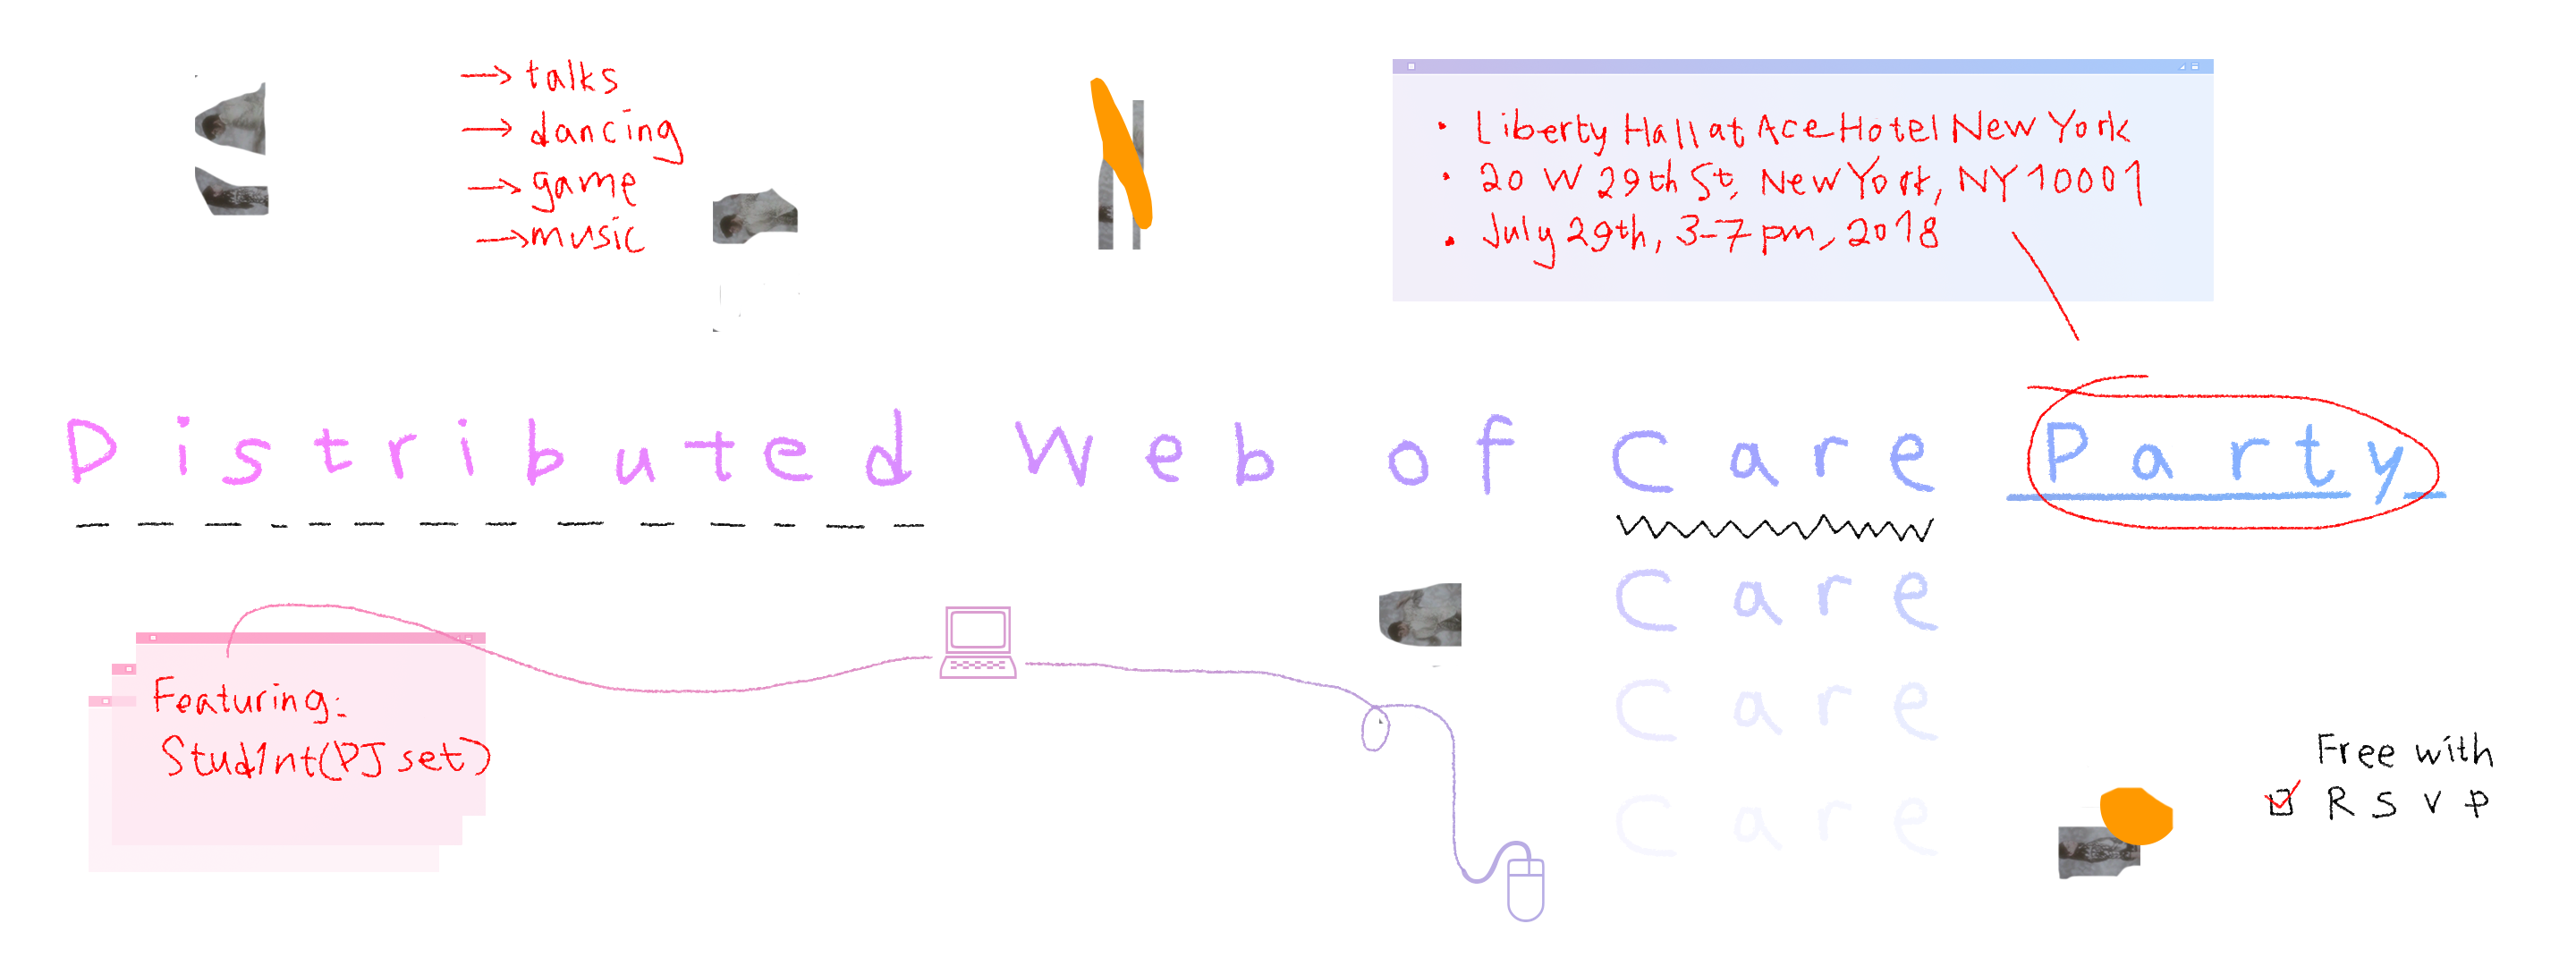 → talks
→ dancing
→ game
→ music
• Liberty Hall at Ace Hotel New York
• 20 W 29th St, New York, NY 10001
• July 29th, 3-7 pm, 2018
Distributed Web of Care Party
Care
Care
Care
Featuring:
Stud1nt (DJ set)
Free with
RSVP